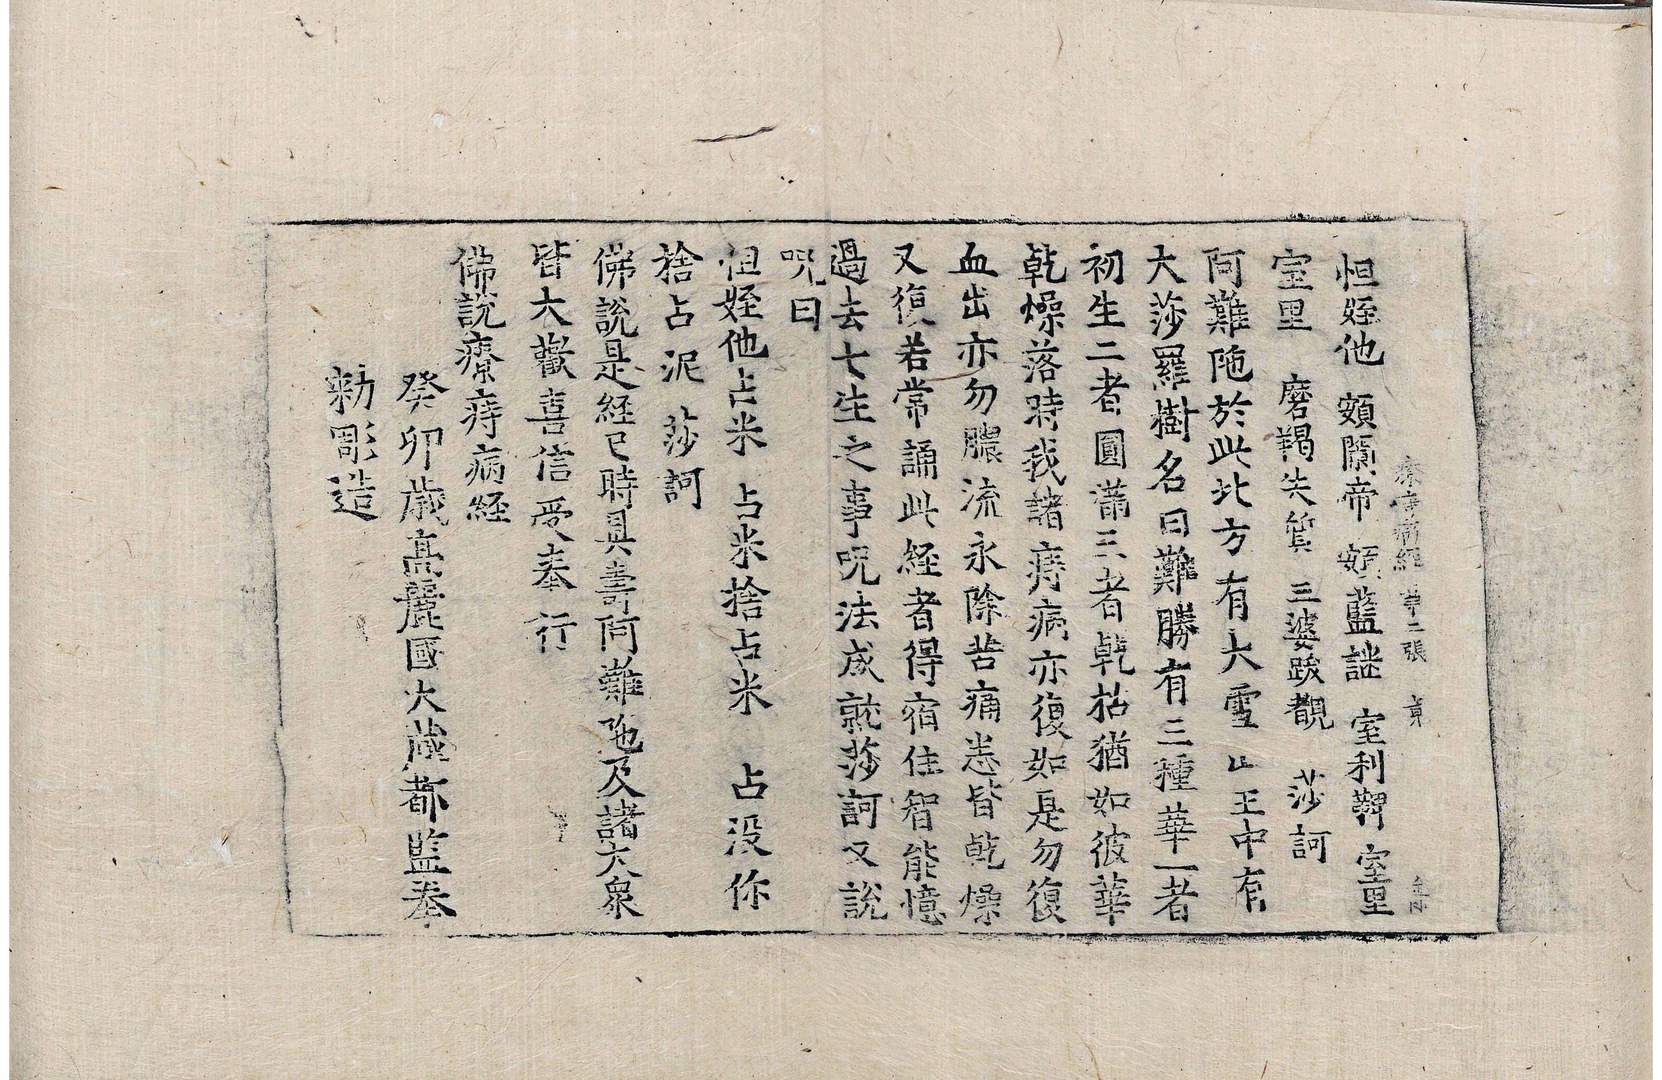 療痔病經 第二張 竟
怛姪他 頞闌帝 頞藍謎 室利鞞 室里
室里 磨羯失質 三婆跋覩 莎訶
阿難陁於此北方有大雪山王中有
大莎羅樹名曰難勝有三種華一者
初生二者圓滿三者乾枯猶如彼華
乾燥落時我諸痔病亦復如是勿復
血出亦勿膿流永除苦痛悉皆乾燥
又復若常誦此經者得宿住智能憶
過去七生之事呪法成就莎訶又說
呪曰
怛姪他 占米 占米捨占米 占没你
捨占泥 莎訶
佛說是經已時具壽阿難陁及諸大衆
皆大歡喜信受奉行
佛說療痔病經
癸卯歲高麗國大藏都監奉
勑彫造